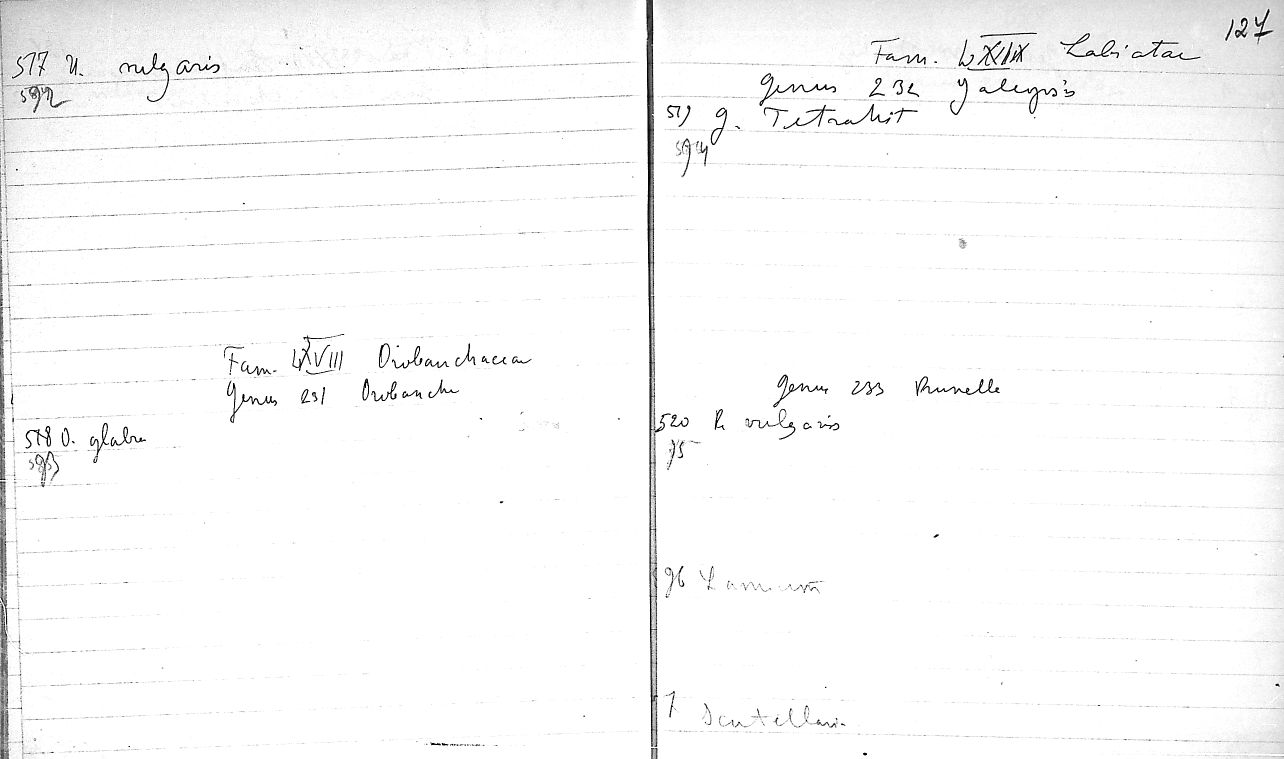 517 U. vulgaris
592
Fam. LXVIII Orobanchaceae
Genus 231 Orobanche
518 O. glabra
593
127
Fam. LXIX Labiatae
Genus 232 Galeopsis
519 G. Tetrahit
594
Genus 233 Prunelle
520 P. vulgaris
95
96 Lamium
7 Scutellaria